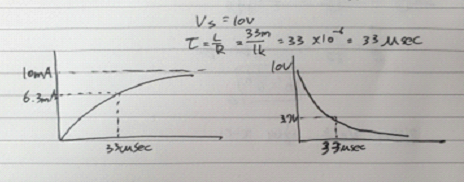 Vs = 10V
τ = L/R = 33m/1k = 33 × 10⁻⁶ = 33 μsec
10mA
6.3mA
33μsec
10V
3.7V
33μsec